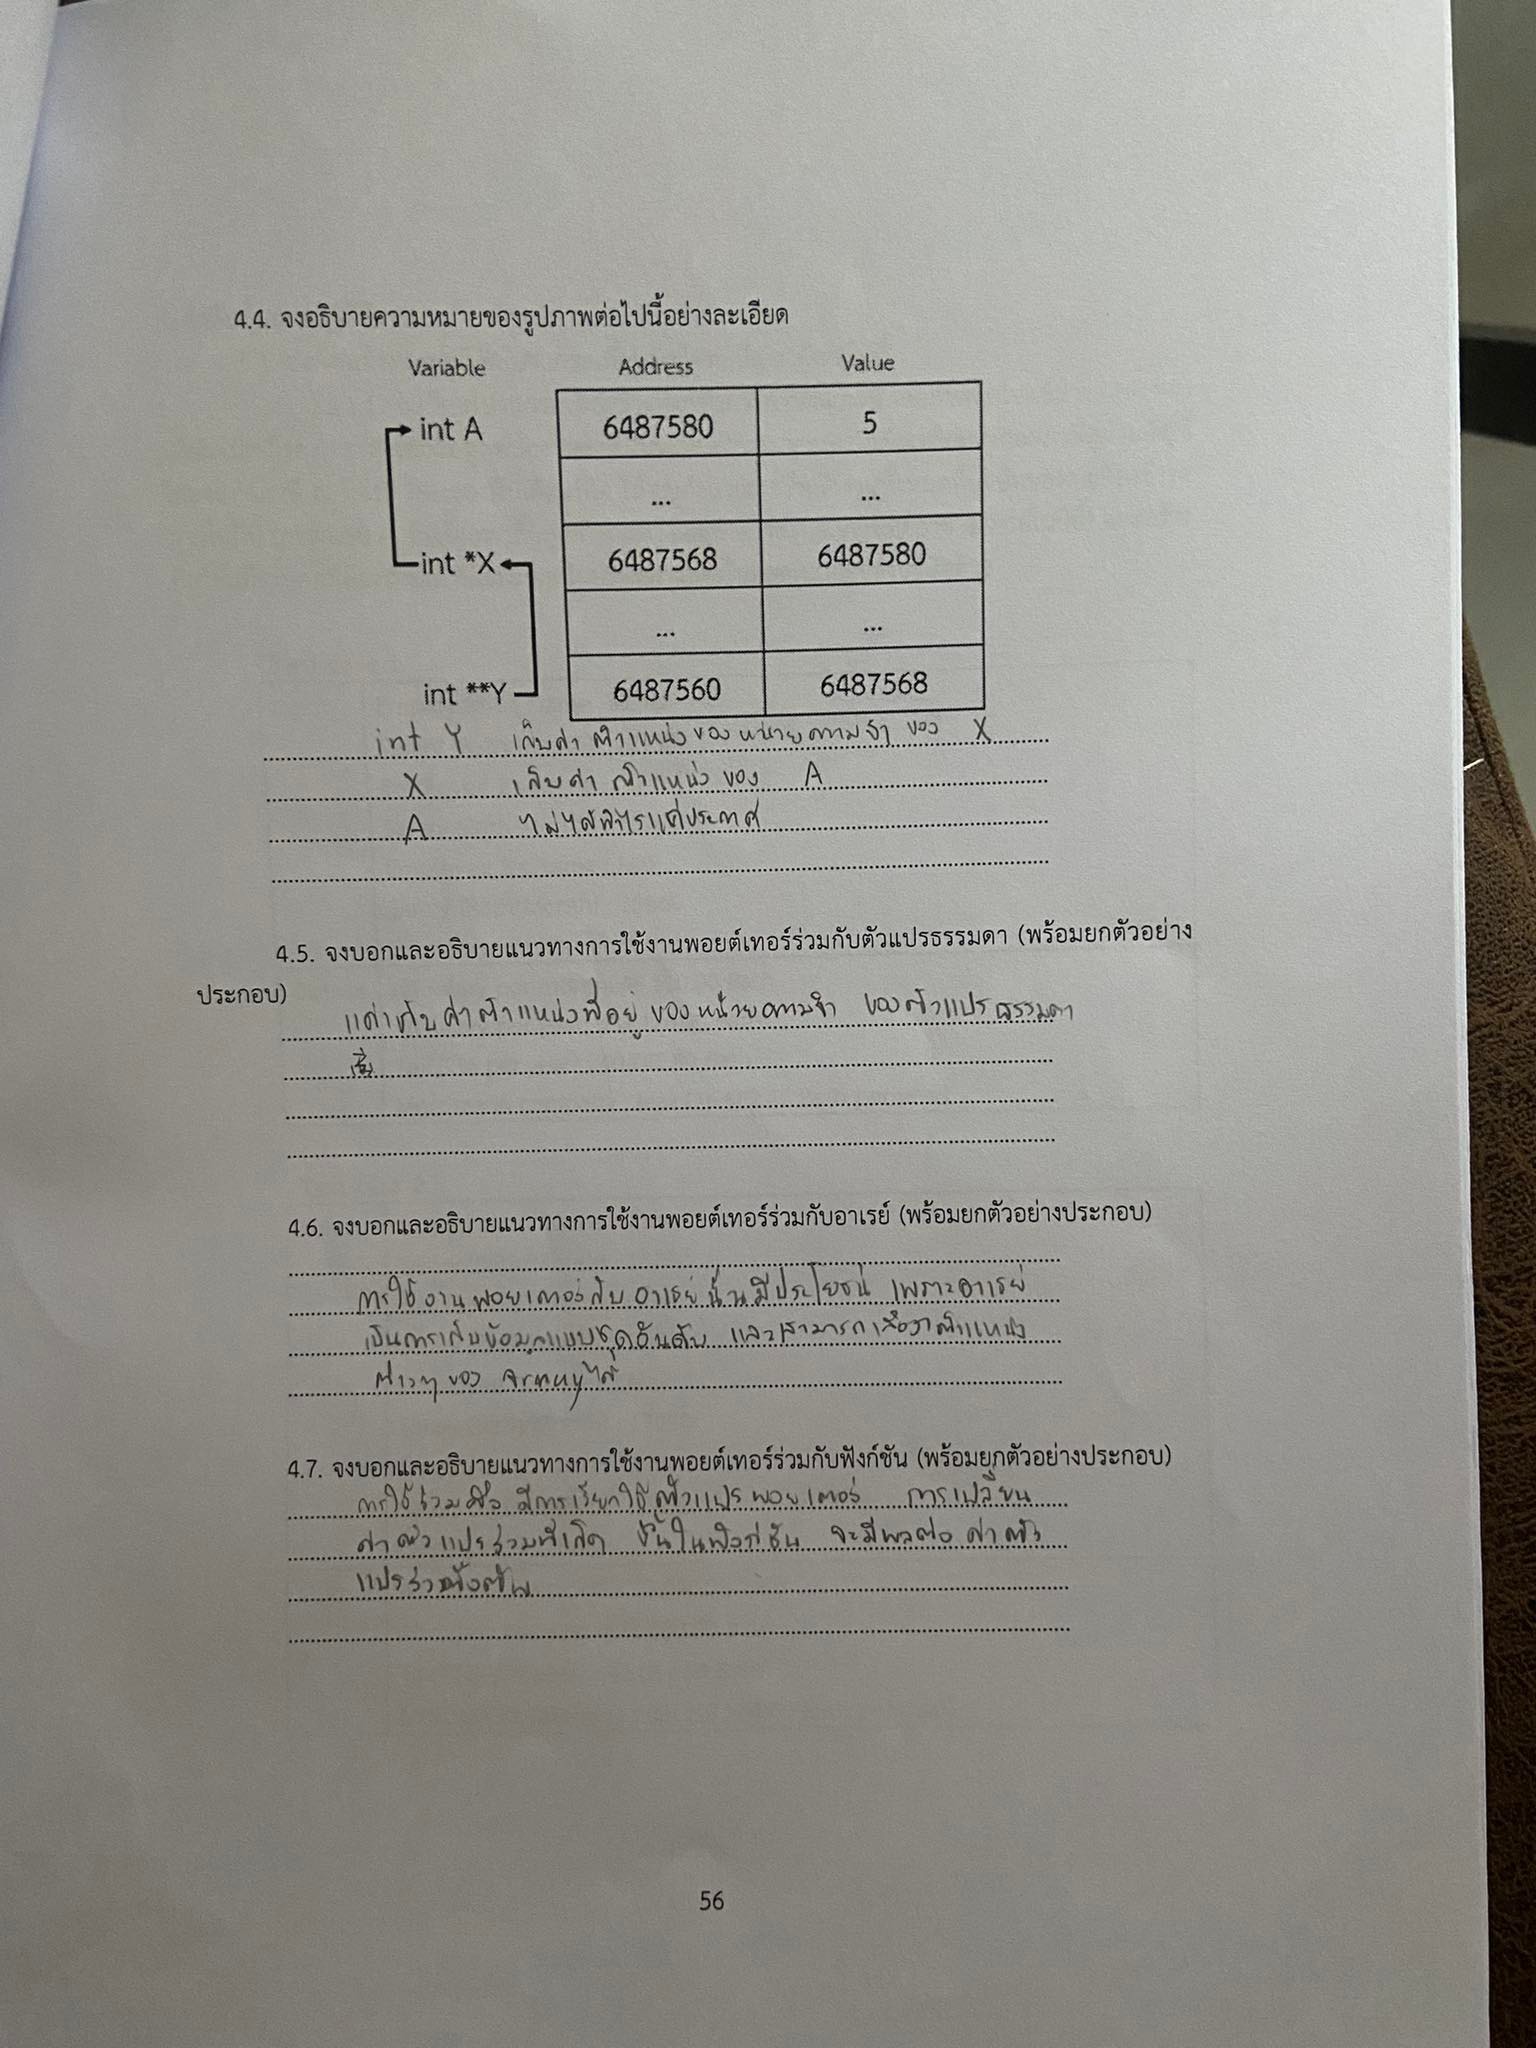 4.4. จงอธิบายความหมายของรูปภาพต่อไปนี้อย่างละเอียด
Variable Address Value
int A 6487580 5
... ...
int *X 6487568 6487580
... ...
int **Y 6487560 6487568
int Y เก็บค่า ตำแหน่งของหน่วยความจำ ของ X
X เก็บค่า ตำแหน่ง ของ A
A ไม่ได้ทำไรแค่ประกาศ
4.5. จงบอกและอธิบายแนวทางการใช้งานพอยต์เทอร์ร่วมกับตัวแปรธรรมดา (พร้อมยกตัวอย่าง
ประกอบ)
แค่เก็บ ค่าตำแหน่งที่อยู่ ของหน่วยความจำ ของตัวแปรธรรมดา
4.6. จงบอกและอธิบายแนวทางการใช้งานพอยต์เทอร์ร่วมกับอาเรย์ (พร้อมยกตัวอย่างประกอบ)
การใช้งานพอยเตอร์กับ อาเรย์นั้นมีประโยชน์ เพราะอาเรย์
เป็นการเก็บข้อมูลแบบชุดอันดับ และสามารถ ตำแหน่ง
ต่างๆ ของ ได้
4.7. จงบอกและอธิบายแนวทางการใช้งานพอยต์เทอร์ร่วมกับฟังก์ชัน (พร้อมยกตัวอย่างประกอบ)
การใช้ร่วม คือ มีการเรียกใช้ ตัวแปร พอยเตอร์ การเปลี่ยน
ค่าตัวแปรร่วมที่เกิด ขึ้นในฟังก์ชัน จะมีผลต่อ ค่าตัว
แปรร่วม
56